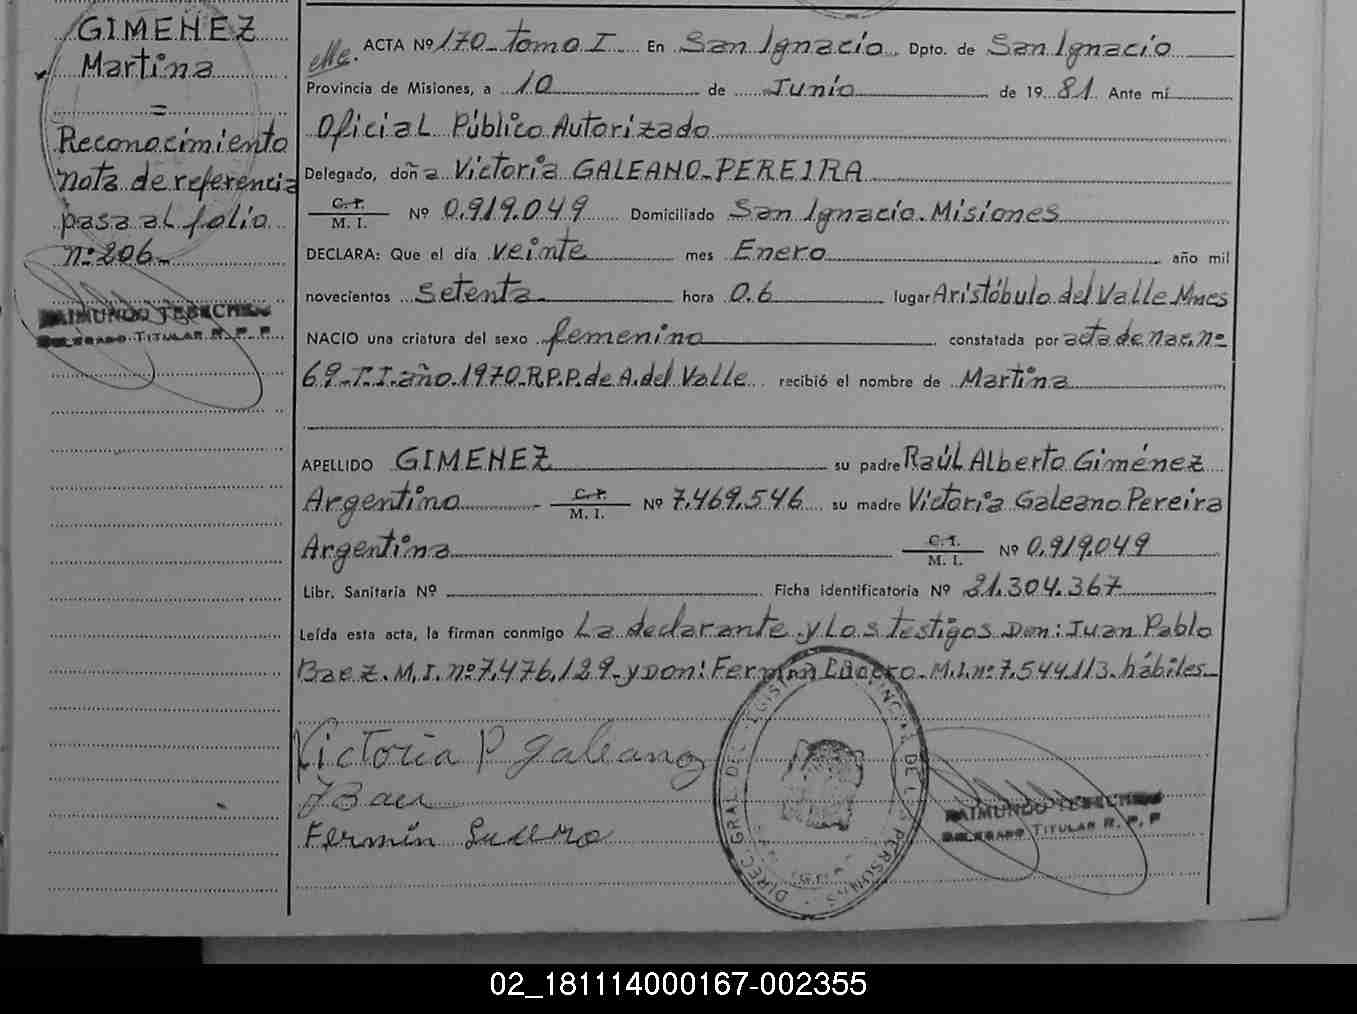 GIMENEZ
Martina
=
Reconocimiento
nota de referencia
pasa al folio
nº 206-
RAIMUNDO
DELEGADO TITULAR R. P. P.
ACTA Nº 170- tomo I En San Ignacio Dpto. de San Ignacio
Provincia de Misiones, a 10 de Junio de 19 81 Ante mí
Oficial Público Autorizado
Delegado, doña Victoria GALEANO-PEREIRA
C. I.
M. I. Nº 0.919.049 Domiciliado San Ignacio. Misiones
DECLARA: Que el día veinte mes Enero año mil
novecientos setenta hora 0.6 lugar Aristóbulo del Valle Mnes
NACIO una criatura del sexo femenino constatada por acta de Nac. nº
69-T.I. año.1970.R.P.P. de A. del Valle recibió el nombre de Martina
APELLIDO GIMENEZ su padre Raúl Alberto Giménez
Argentino - C. I. M. I. Nº 7.469.546 su madre Victoria Galeano Pereira
Argentina C. I. M. I. Nº 0.919.049
Libr. Sanitaria Nº Ficha identificatoria Nº 21.304.367
Leída esta acta, la firman conmigo La declarante y los testigos Don: Juan Pablo
Baez. M. I. nº 7.476.129- y Don: Fermín Lucero. M.I. nº 7.544.113. hábiles-
Victoria P Galeano
J Baez
Fermín Lucero
DIREC. GRAL. DEL REGISTRO PROVINCIAL DE LAS PERSONAS
RAIMUNDO
DELEGADO TITULAR R. P. P
02_181114000167-002355